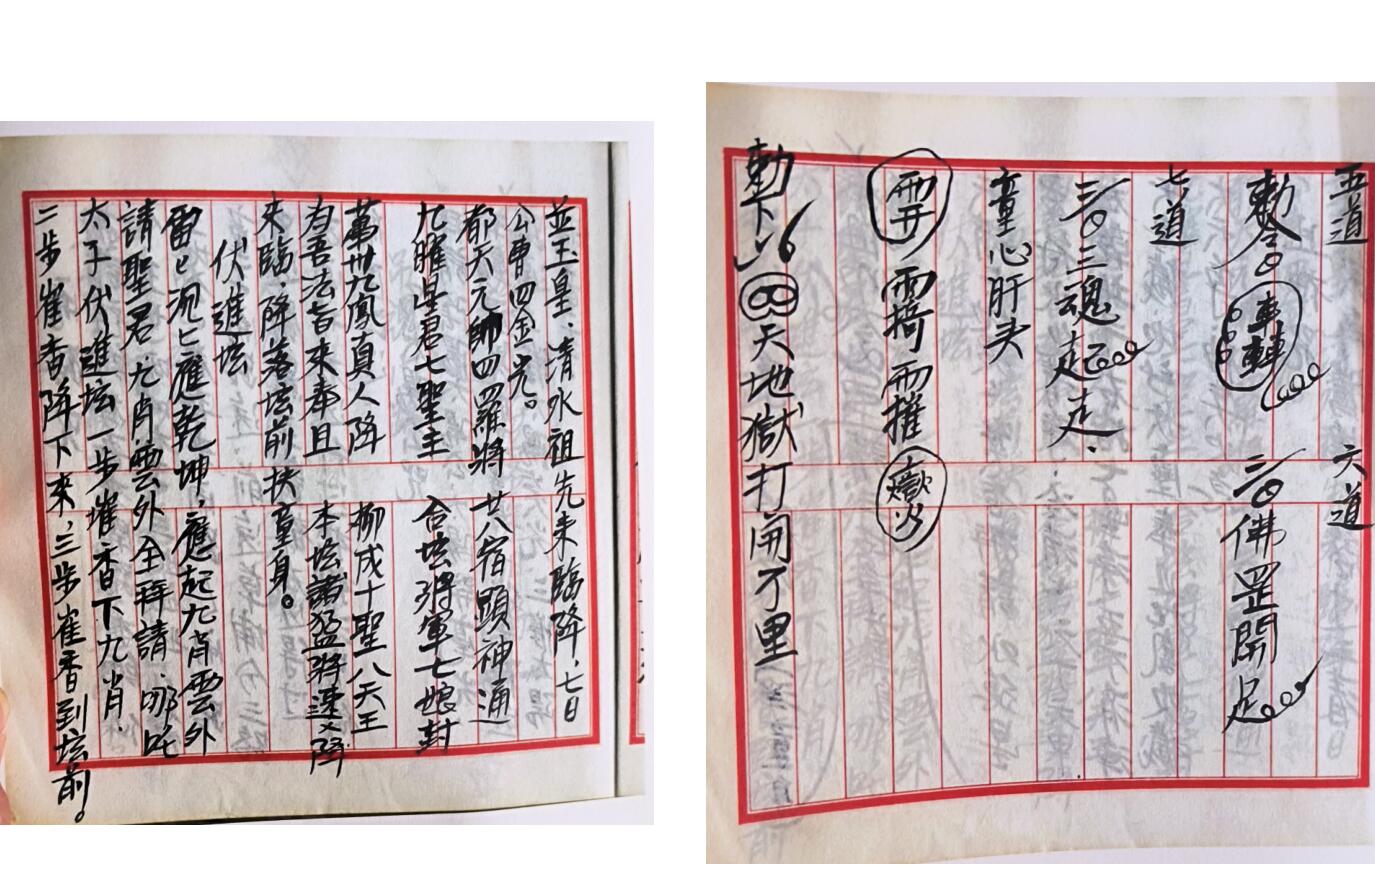 並玉皇、清水祖先来臨降、七日
公曹四金光。
都天元帥四羅將 廿八宿顯神通
九曜星君七聖主 合坛將軍七娘封
萬卅九鳳真人降 柳戍十聖八天王
有吾法旨來奉且 本坛諸猛將速々降
來臨、降落坛前 扶童身。
伏進坛
雷匕 應乾坤，應起九肖雲外
請聖君、九肖雲外全拜請、哪吒
太子伏進坛一步摧香下九肖、
二步崔香降下來、三步崔香到坛前。
五道 六道
敕令 佛罡開
七道
三魂起走、
童心肝头
勅下 天地獄打開万里